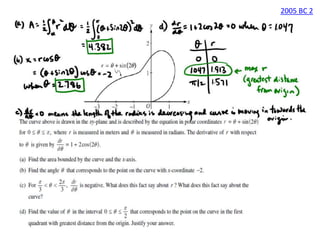 2005 BC 2
(a) A = 1/2 ∫₀^π r² dθ = 1/2 ∫₀^π (θ + sin2θ)² dθ
= 4.382
(b) x = r cosθ
= (θ + sin2θ) cosθ = -2
when θ = 2.786
(d) dr/dθ = 1 + 2cos2θ = 0 when θ = 1.047
θ r
0 0
1.047 1.913 ← max r
π/2 1.571
(greatest distance from origin)
r = θ + sin(2θ)
y
2
1
-3 -2 -1 O 1 2 x
(c) dr/dθ < 0 means the length of the radius is decreasing and curve is moving in towards the origin.
The curve above is drawn in the xy-plane and is described by the equation in polar coordinates r = θ + sin(2θ)
for 0 ≤ θ ≤ π, where r is measured in meters and θ is measured in radians. The derivative of r with respect
to θ is given by dr/dθ = 1 + 2cos(2θ).
(a) Find the area bounded by the curve and the x-axis.
(b) Find the angle θ that corresponds to the point on the curve with x-coordinate −2.
(c) For π/3 < θ < 2π/3, dr/dθ is negative. What does this fact say about r ? What does this fact say about the
curve?
(d) Find the value of θ in the interval 0 ≤ θ ≤ π/2 that corresponds to the point on the curve in the first
quadrant with greatest distance from the origin. Justify your answer.